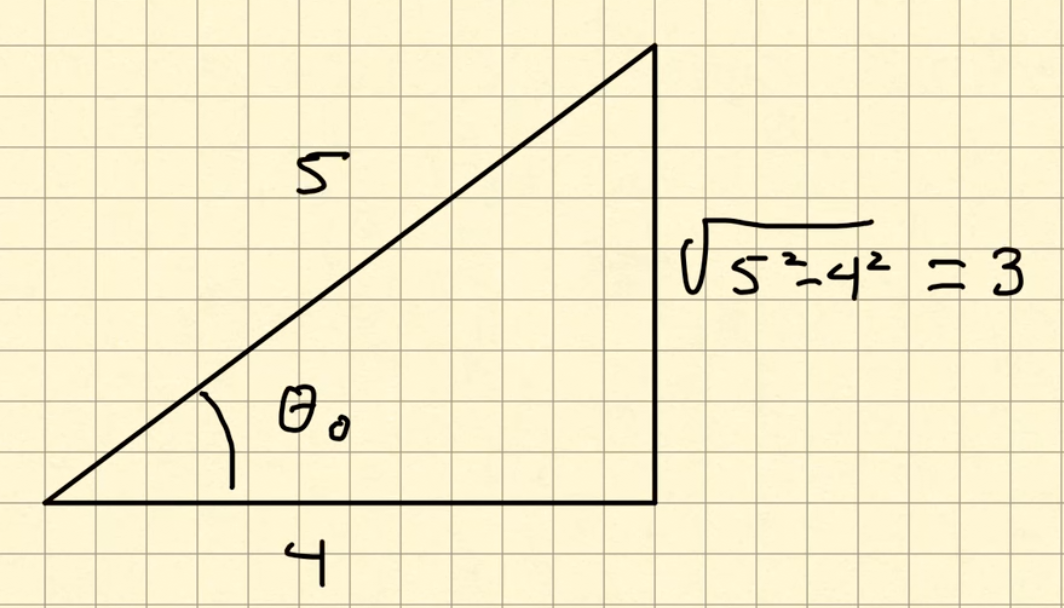 5
√5²-4² = 3
θ₀
4